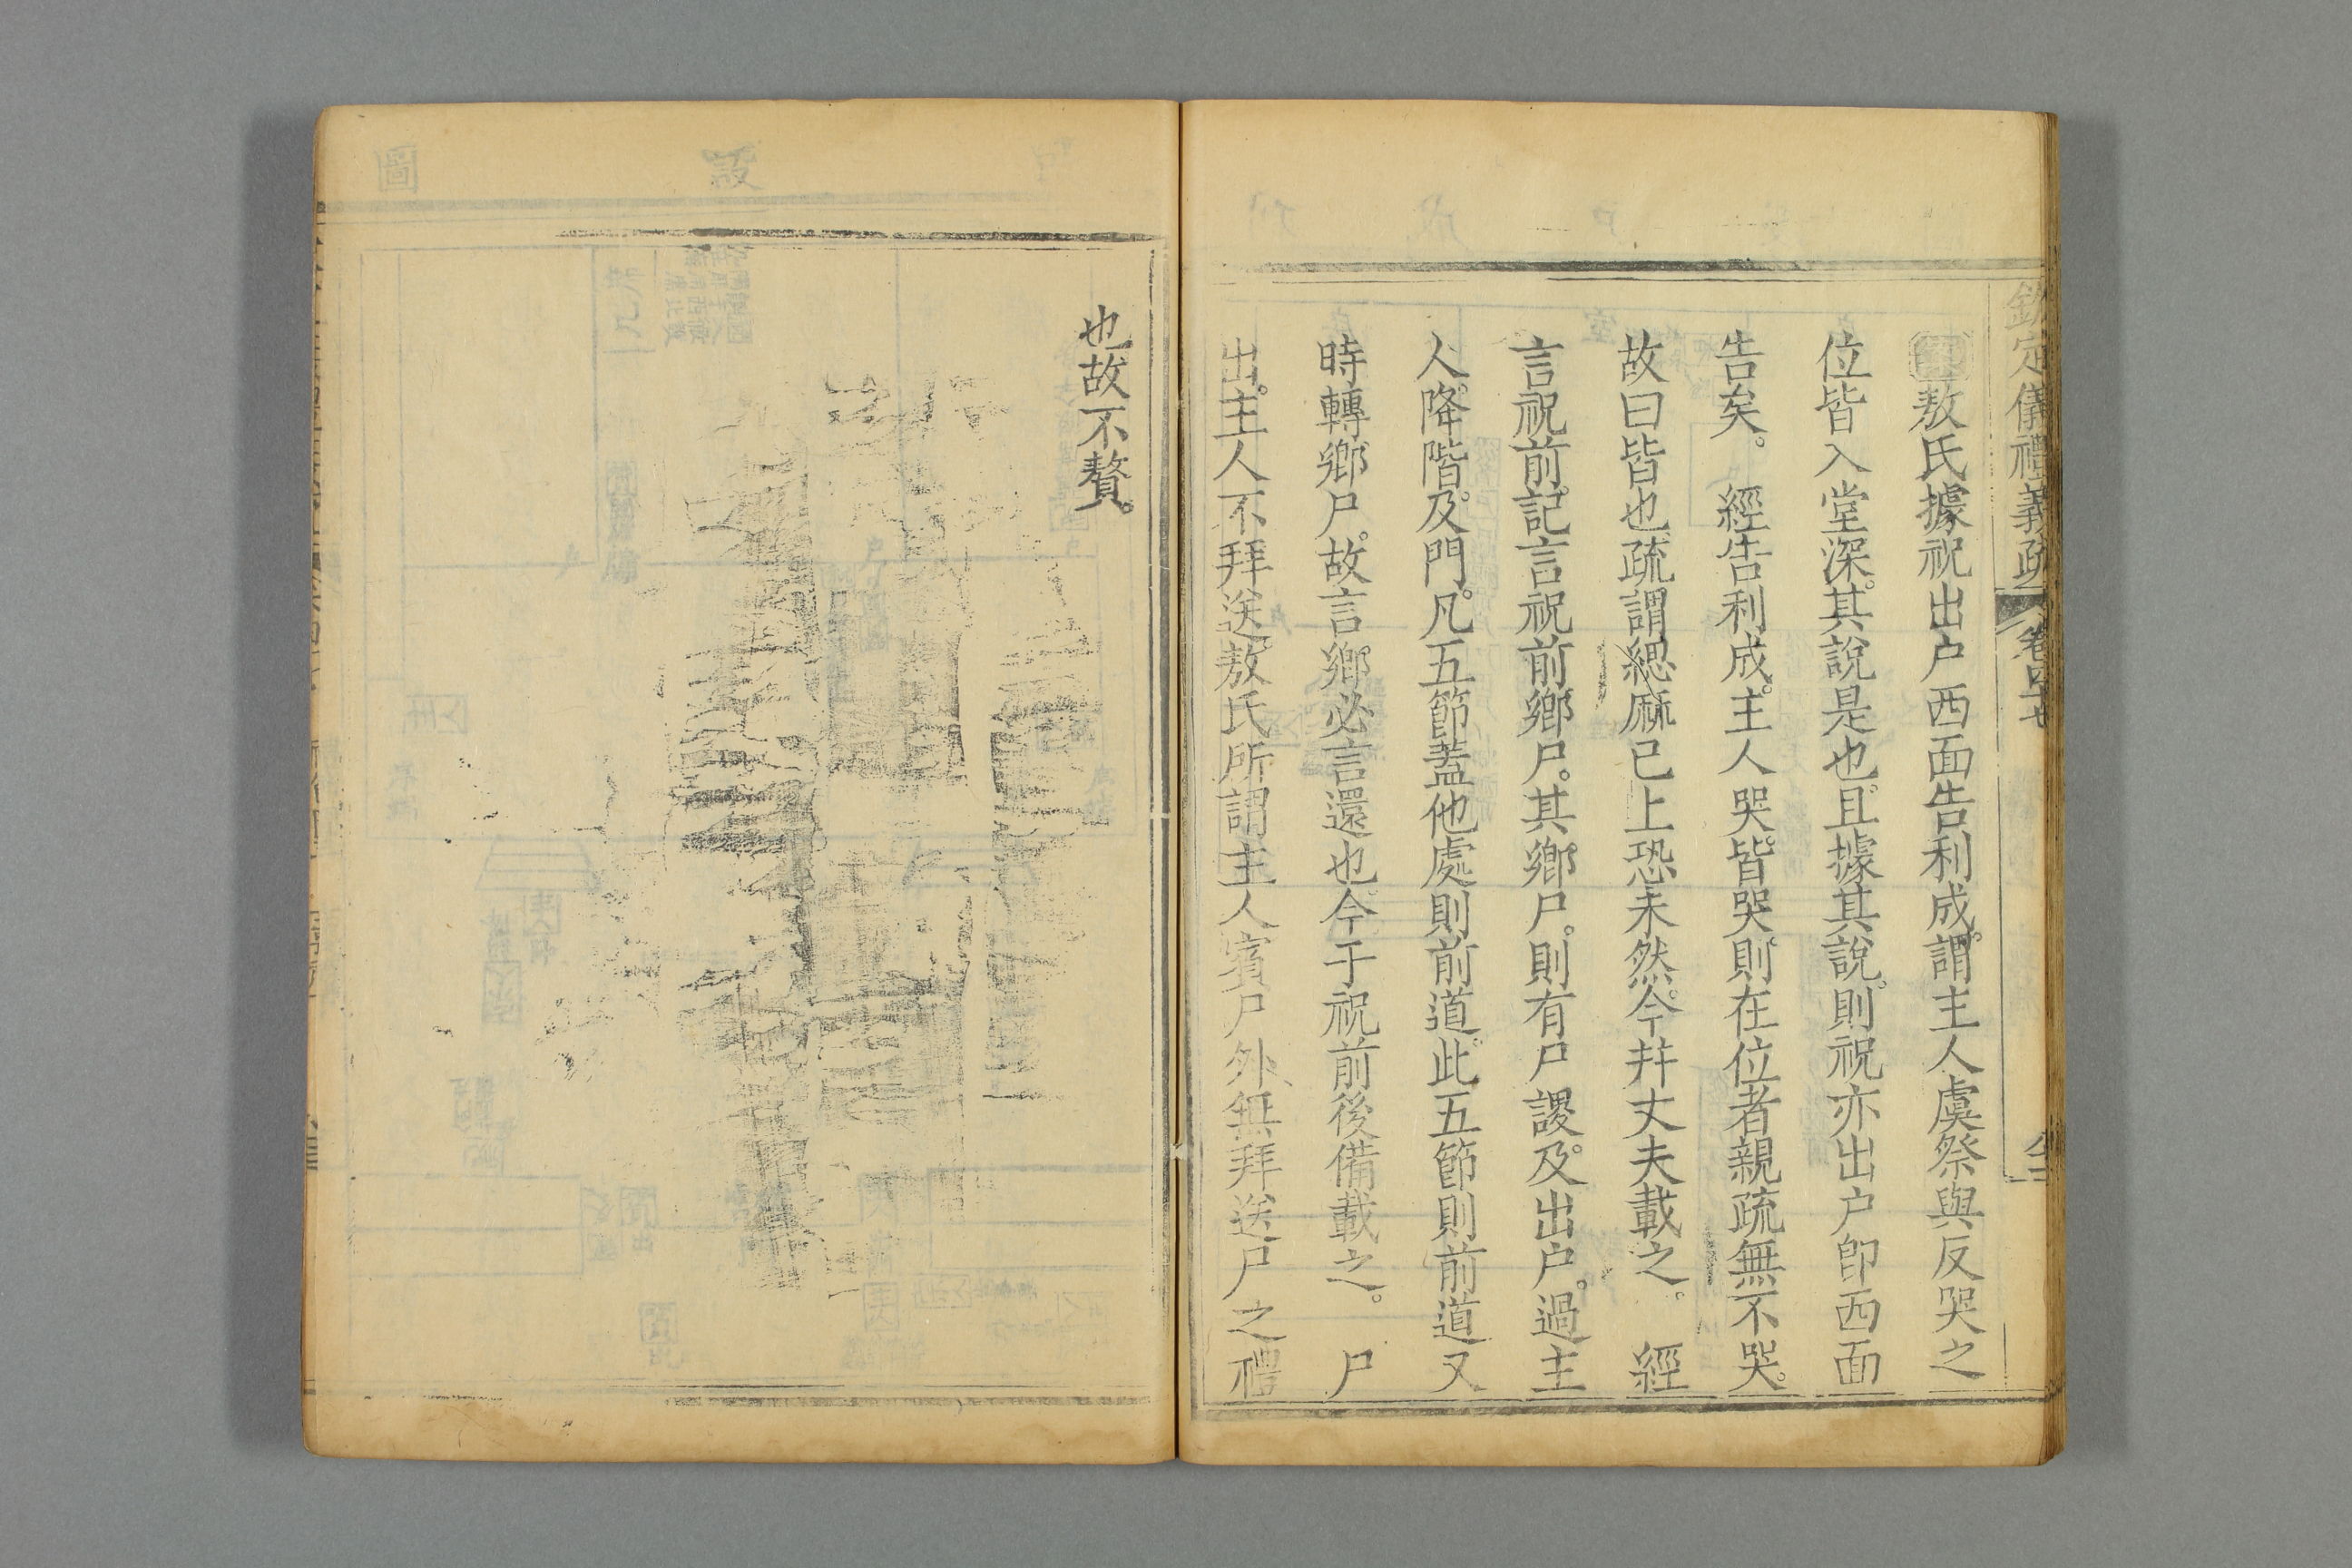 欽定儀禮義疏 卷四十七
敖氏據祝出户西面告利成。謂主人虞祭與反哭之
位皆入堂深。其說是也。且據其說。則祝亦出户卽西面
告矣。 經告利成。主人哭。皆哭。則在位者親疏無不哭。
故曰皆也。疏謂緦麻已上恐未然。今幷丈夫載之。 經
言祝前。記言祝前鄉尸。其鄉尸。則有尸謖。及出户。過主
人。降階。及門。凡五節。蓋他處則前道。此五節則前道又
時轉鄉尸。故言鄉。必言還也。今于祝前後備載之。 尸
出。主人不拜送。敖氏所謂主人賓尸外無拜送尸之禮
也。故不贅。